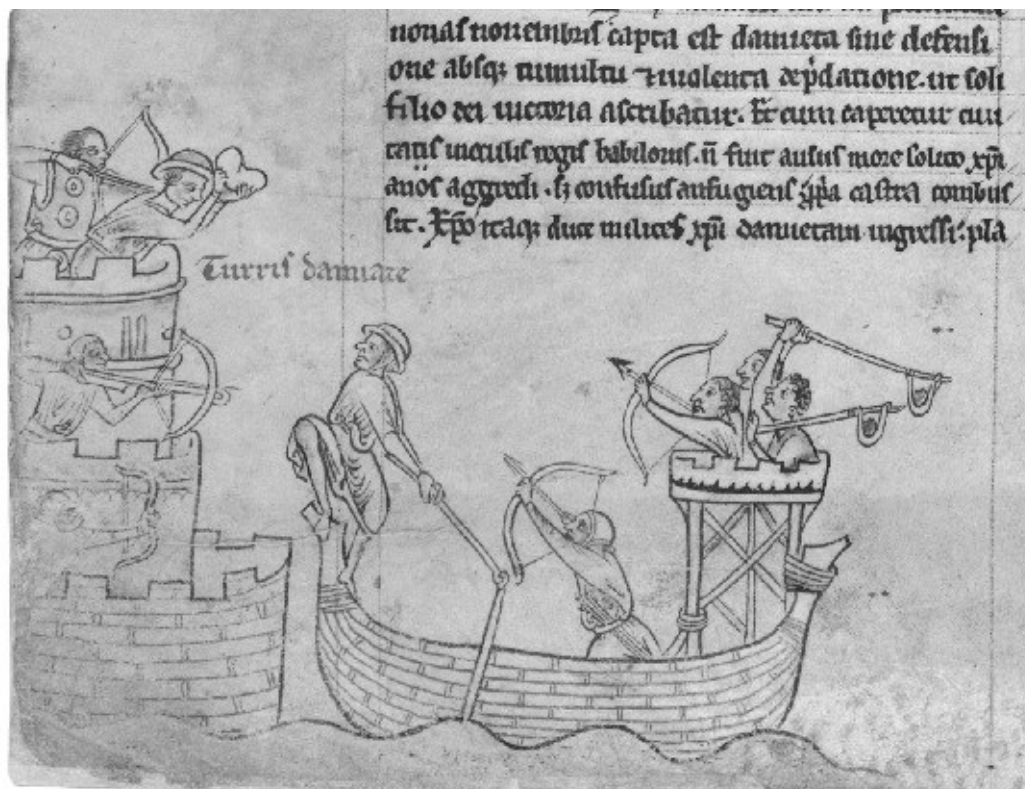 nonas nouembris capta est damieta sine defensi
one absq; tumultu ⁊ uiolenta dep̄datione. ut soli
filio dei uictoria ascribatur. Et cum caperetur ciui
tatis in oculis regis babilonis. n̄ fuit ausus more solito xp̄i
anos aggredi. sꝫ confusus aufugiens castra combus
sit. Xp̄o itaq; duce milites xp̄i damietam ingressi: pla
Turris damiate